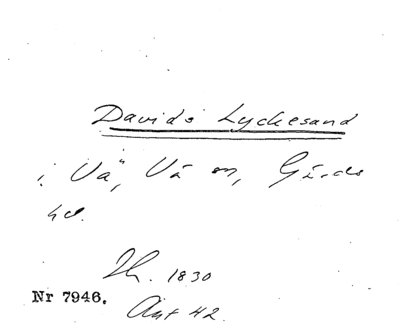 Davids Lyckesand
i Vä, Vä sn, Gärds
hd.
Th. 1830
Nr 7946.
Ant 42